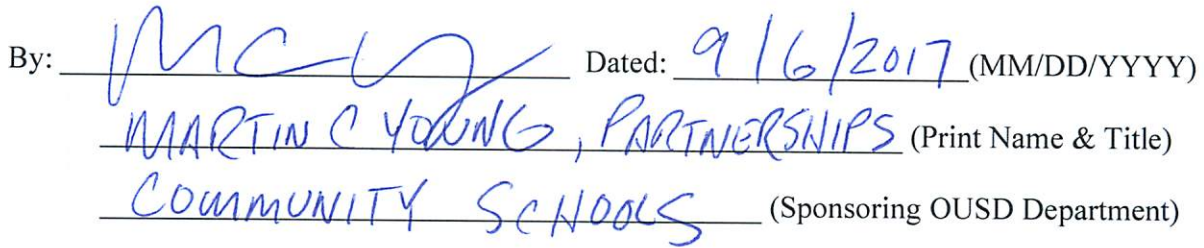 By: Dated: 9/6/2017 (MM/DD/YYYY)
MARTIN C YOUNG, PARTNERSHIPS (Print Name & Title)
COMMUNITY SCHOOLS (Sponsoring OUSD Department)